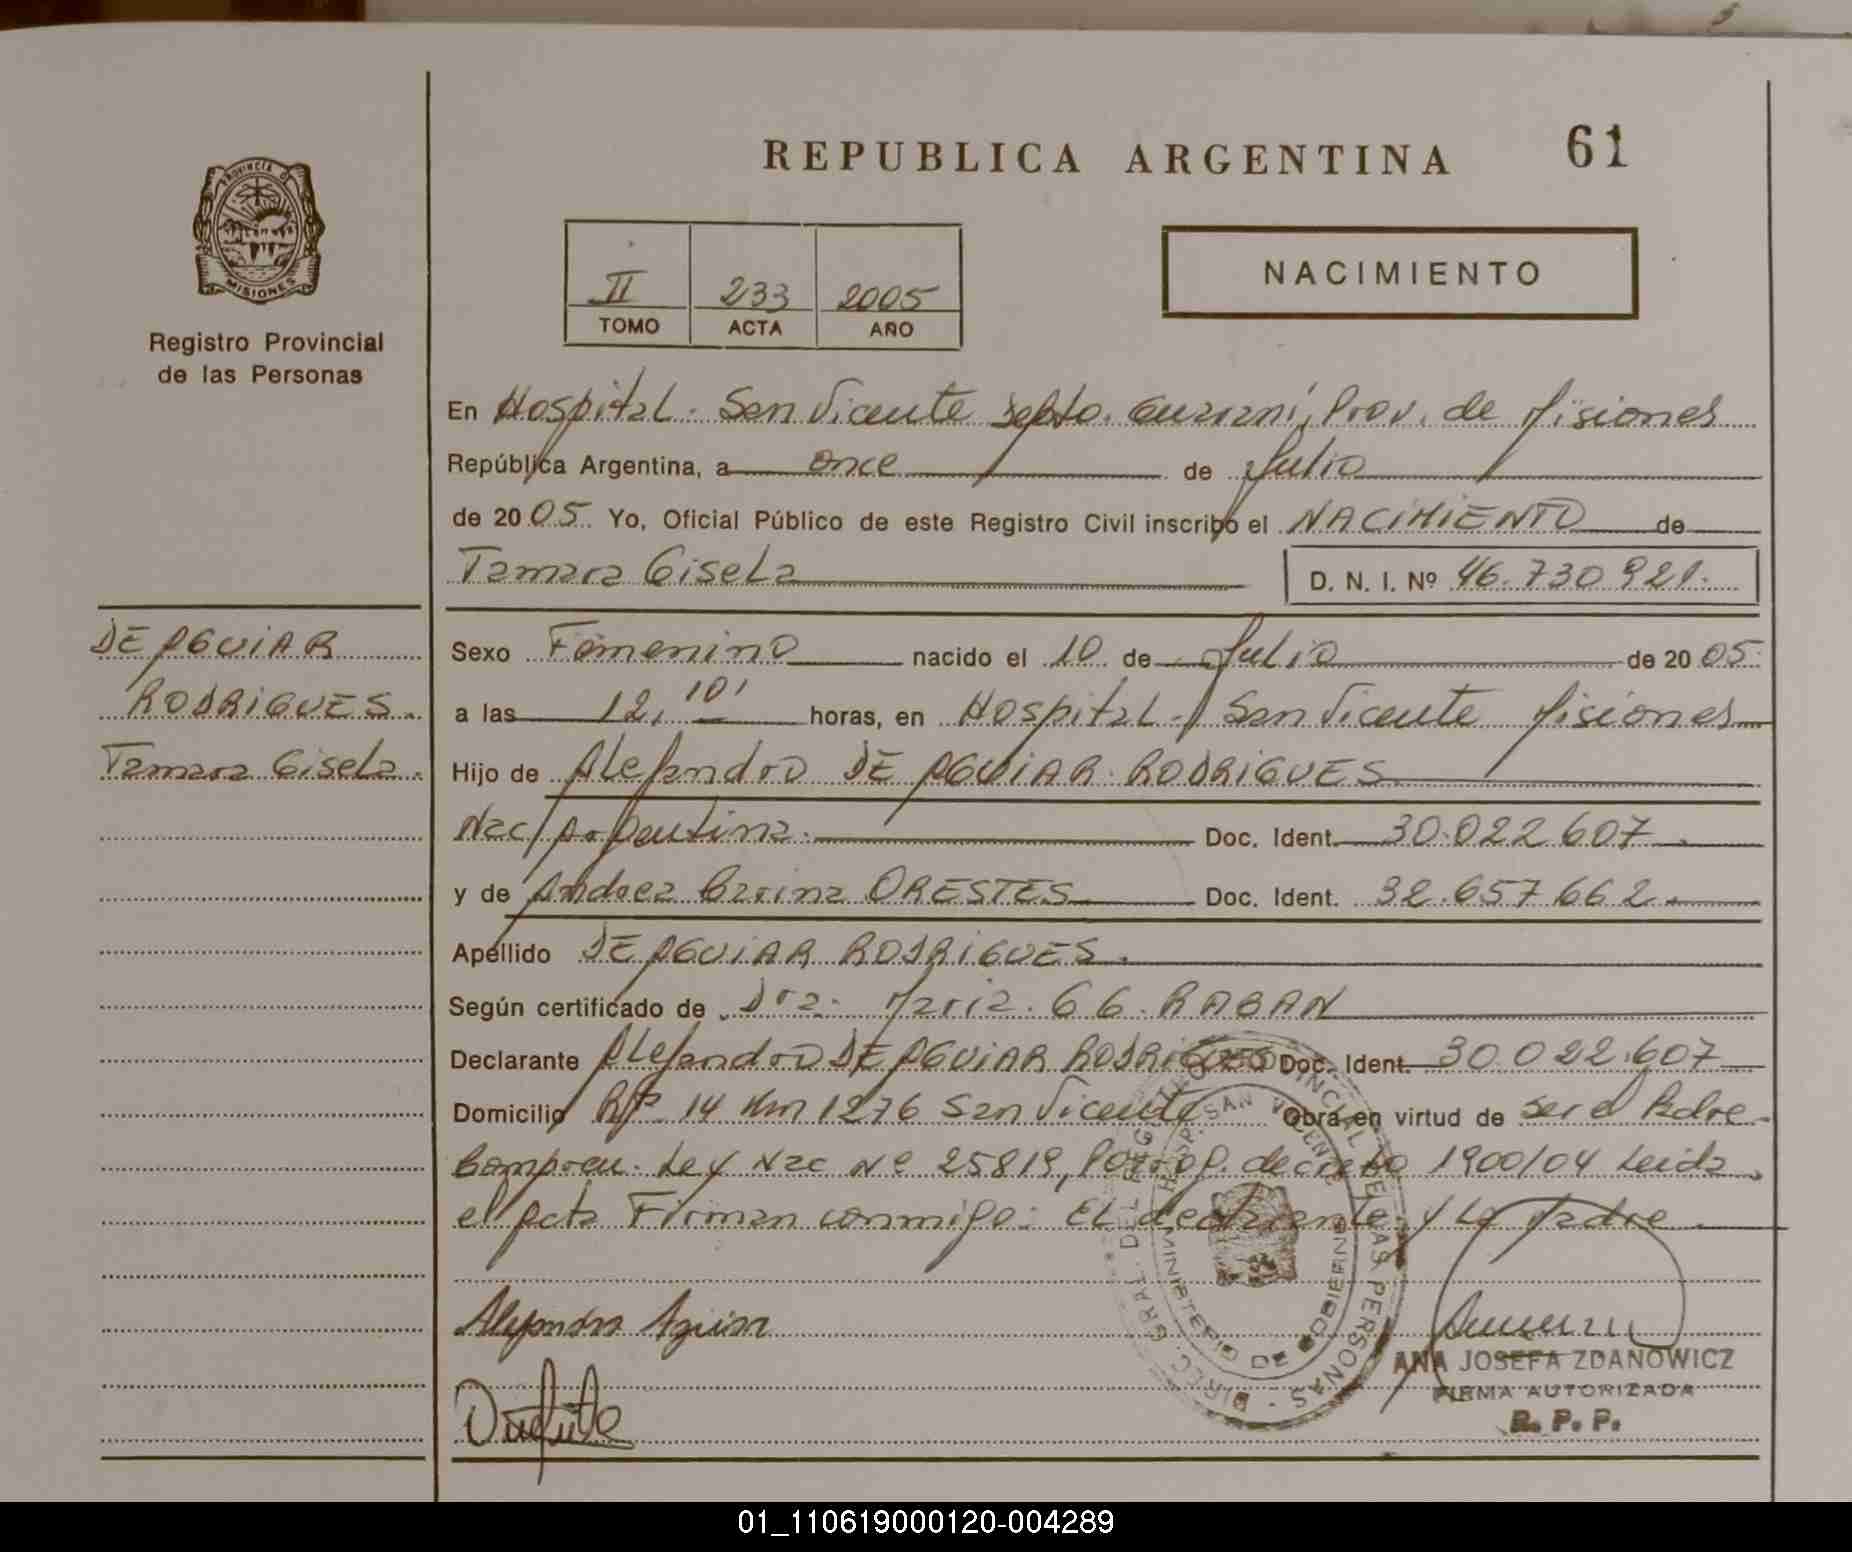 REPUBLICA ARGENTINA 61
PROVINCIA DE
MISIONES
Registro Provincial
de las Personas
II 233 2005
TOMO ACTA AÑO
NACIMIENTO
En Hospital. San Vicente Depto. Guaraní, Prov. de Misiones
República Argentina, a once de Julio
de 2005. Yo, Oficial Público de este Registro Civil inscribo el NACIMIENTO de
Tamara Gisela D. N. I. Nº 46.730.921.
DE AGUIAR
RODRIGUES.
Tamara Gisela.
Sexo Femenino nacido el 10 de Julio de 2005.
a las 12,10' horas, en Hospital. San Vicente Misiones
Hijo de Alejandro DE AGUIAR RODRIGUES
Nac/Argentina. Doc. Ident. 30.022.607.
y de Andrea Carina ORESTES Doc. Ident. 32.657.662.
Apellido DE AGUIAR RODRIGUES.
Según certificado de Dra. Maria. G G. RABAN
Declarante Alejandro DE AGUIAR RODRIGUES Doc. Ident. 30.022.607
Domicilio RP 14 Km 1276 San Vicente Obra en virtud de ser el Padre
Compren. Ley Nac Nº 25819, Prorrop. decreto 1900/04 Leida
el Acta Firman conmigo: El declarante y La Madre.
DIREC. GRAL. DEL REGISTRO PROVINCIAL DE LAS PERSONAS
HOSP. SAN VICENTE
MINISTERIO DE GOBIERNO
ANA JOSEFA ZDANOWICZ
FIRMA AUTORIZADA
R. P. P.
01_110619000120-004289